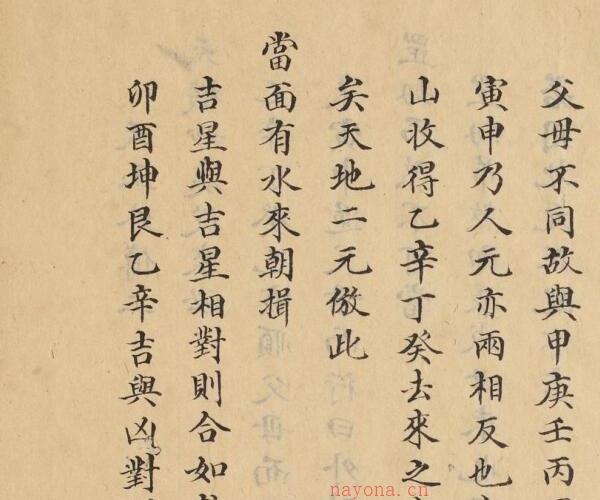 父母不同故與甲庚壬丙
寅申乃人元亦兩相反也
山收得乙辛丁癸去來之
矣天地二元倣此
當面有水來朝揖
吉星與吉星相對則合如
卯酉坤艮乙辛吉與凶對
nayona.cn